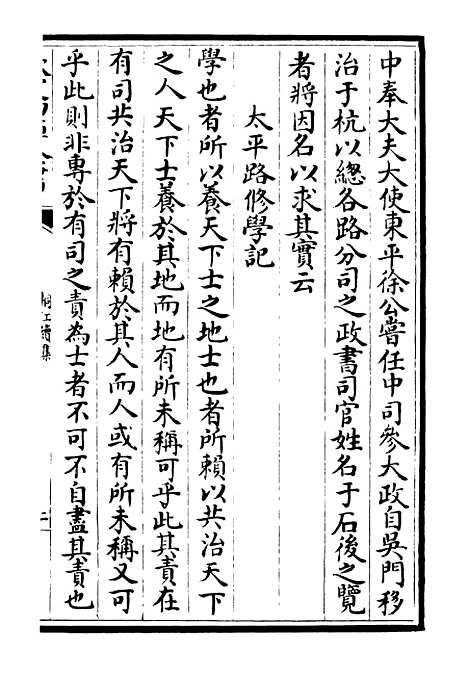 中奉大夫大使東平徐公嘗任中司參大政自吳門移
治于杭以總各路分司之政書司官姓名于石後之覽
者將因名以求其實云
太平路修學記
學也者所以養天下士之地士也者所賴以共治天下
之人天下士養於其地而地有所未稱可乎此其責在
有司共治天下將有賴於其人而人或有所未稱又可
乎此則非專於有司之責為士者不可不自盡其責也
桐江續集